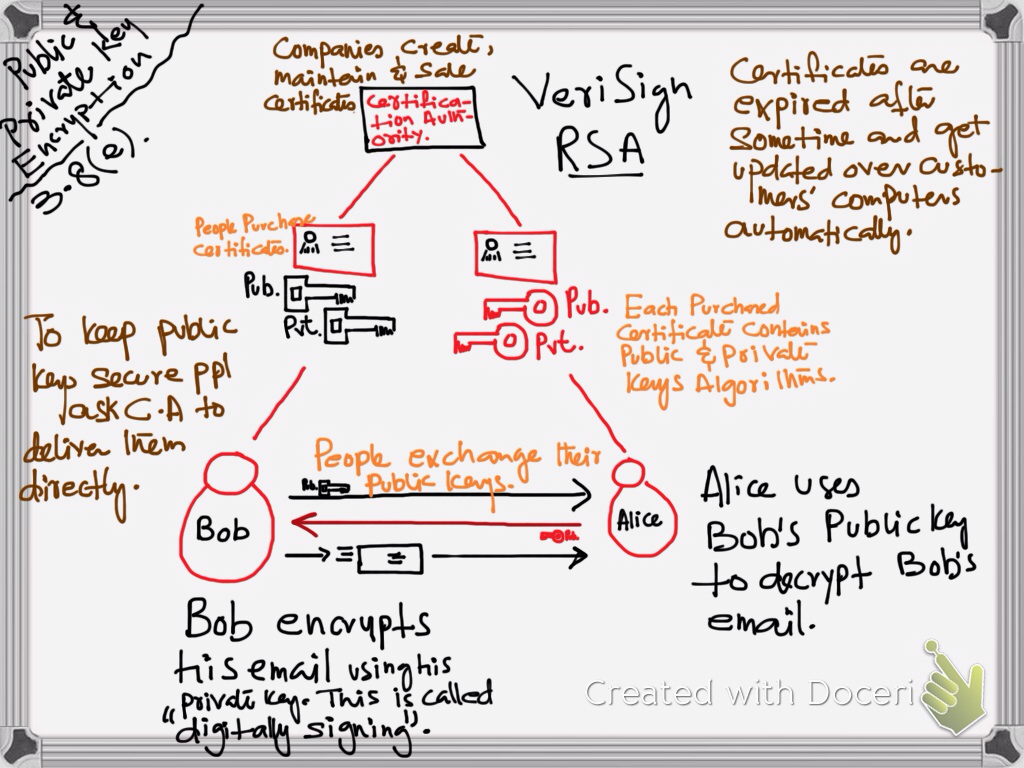 Public &
Private Key
Encryption
3.8(e).
Companies create,
maintain & sale
certificates
Certifica-
tion Auth-
ority.
VeriSign
RSA
Certificates are
expired after
sometime and get
updated over custo-
mers' computers
automatically.
People Purchase
certificates.
Pub.
Pvt.
Pub.
Pvt.
Each Purchased
certificate contains
Public & Private
Keys Algorithms.
To keep public
keys secure ppl
ask C.A to
deliver them
directly.
People exchange their
Public Keys.
Pub.
Bob
Alice
Alice uses
Bob's Public Key
to decrypt Bob's
email.
Bob encrypts
his email using his
private key. This is called
"digitally signing".
Created with Doceri